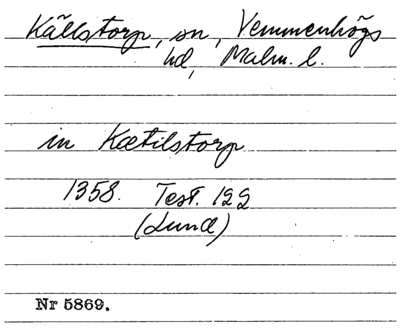 Källstorp, sn, Vemmenhögs
hd, Malm. l.
in Kætilstorp
1358. Test. 122
(Lund)
Nr 5869.